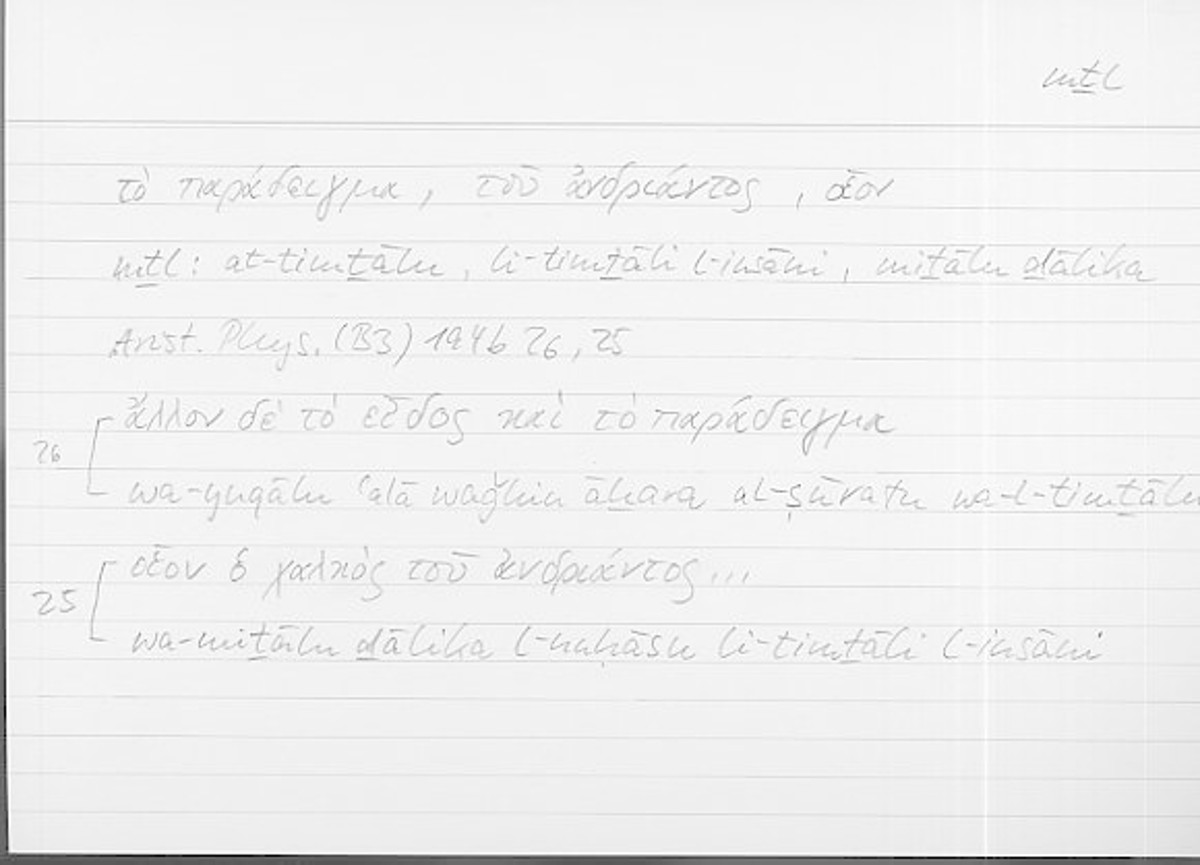 mṯl
τὸ παράδειγμα, τοῦ ἀνδριάντος, οἷον
mṯl: at-timṯālu, li-timṯāli l-insāni, miṯālu ḏālika
Arist. Phys. (B3) 194b 26, 25
ἄλλον δὲ τὸ εἶδος καὶ τὸ παράδειγμα
26
wa-yuqālu ʿalā waǧhin āḫara aṣ-ṣūratu wa-t-timṯālu
οἷον ὁ χαλκὸς τοῦ ἀνδριάντος...
25
wa-miṯālu ḏālika l-nuḥāsu li-timṯāli l-insāni